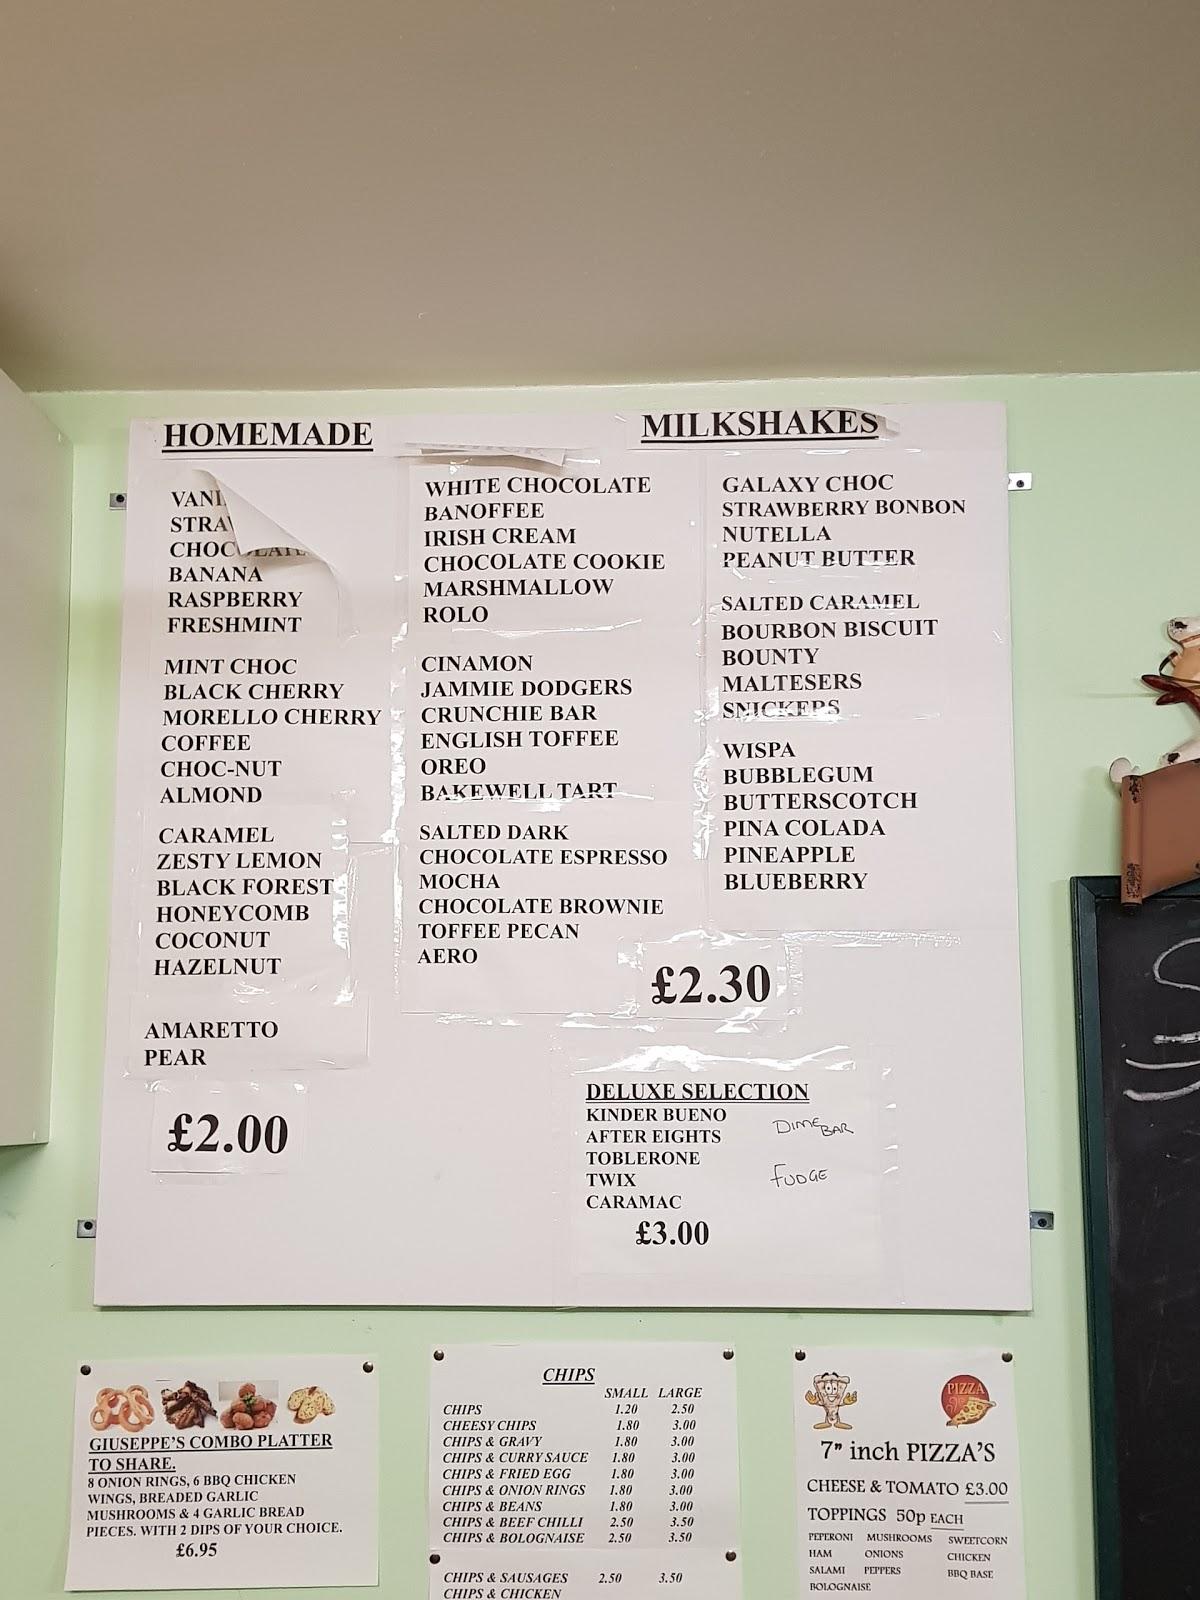 HOMEMADE
MILKSHAKES
BANANA
RASPBERRY
FRESHMINT
MINT CHOC
BLACK CHERRY
MORELLO CHERRY
COFFEE
CHOC-NUT
ALMOND
CARAMEL
ZESTY LEMON
BLACK FOREST
HONEYCOMB
COCONUT
HAZELNUT
AMARETTO
PEAR
£2.00
WHITE CHOCOLATE
BANOFFEE
IRISH CREAM
CHOCOLATE COOKIE
MARSHMALLOW
ROLO
CINAMON
JAMMIE DODGERS
CRUNCHIE BAR
ENGLISH TOFFEE
OREO
BAKEWELL TART
SALTED DARK
CHOCOLATE ESPRESSO
MOCHA
CHOCOLATE BROWNIE
TOFFEE PECAN
AERO
GALAXY CHOC
STRAWBERRY BONBON
NUTELLA
PEANUT BUTTER
SALTED CARAMEL
BOURBON BISCUIT
BOUNTY
MALTESERS
SNICKERS
WISPA
BUBBLEGUM
BUTTERSCOTCH
PINA COLADA
PINEAPPLE
BLUEBERRY
£2.30
DELUXE SELECTION
KINDER BUENO
AFTER EIGHTS
TOBLERONE
TWIX
CARAMAC
DIME BAR
FUDGE
£3.00
GIUSEPPE'S COMBO PLATTER
TO SHARE.
8 ONION RINGS, 6 BBQ CHICKEN
WINGS, BREADED GARLIC
MUSHROOMS & 4 GARLIC BREAD
PIECES. WITH 2 DIPS OF YOUR CHOICE.
£6.95
CHIPS
SMALL LARGE
CHIPS 1.20 2.50
CHEESY CHIPS 1.80 3.00
CHIPS & GRAVY 1.80 3.00
CHIPS & CURRY SAUCE 1.80 3.00
CHIPS & FRIED EGG 1.80 3.00
CHIPS & ONION RINGS 1.80 3.00
CHIPS & BEANS 1.80 3.00
CHIPS & BEEF CHILLI 2.50 3.50
CHIPS & BOLOGNAISE 2.50 3.50
CHIPS & SAUSAGES 2.50 3.50
CHIPS & CHICKEN
PIZZA
7" inch PIZZA'S
CHEESE & TOMATO £3.00
TOPPINGS 50p EACH
PEPERONI MUSHROOMS SWEETCORN
HAM ONIONS CHICKEN
SALAMI PEPPERS BBQ BASE
BOLOGNAISE